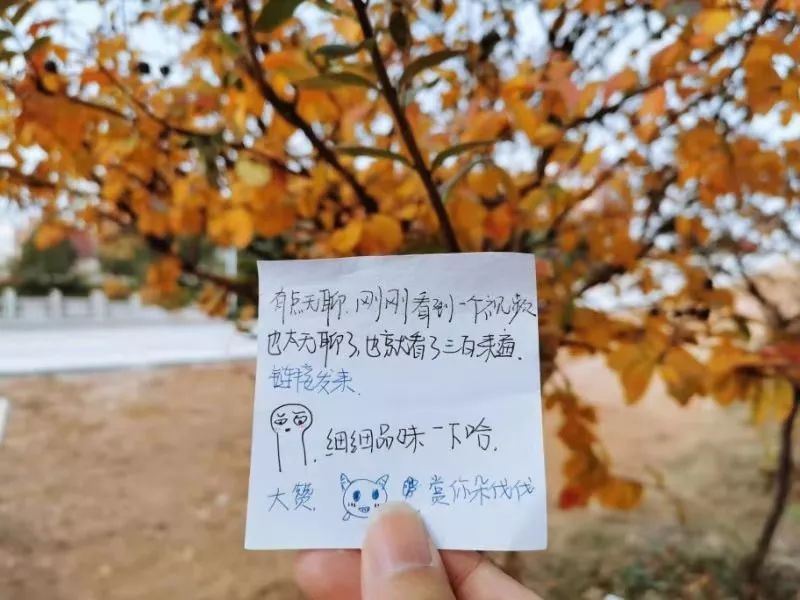 有点无聊.刚刚看到一个视频
也太无聊了,也就看了三百来遍.
链接发来.
细细品味一下哈.
大赞. 赏你朵伐伐